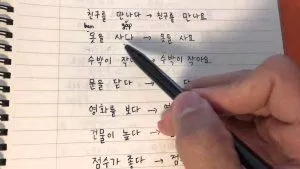 친구를 만나다 → 친구를 만나요
옷을 사다 → 옷을 사요
수박이 작 → 수박이 작아요
문을 닫다 →
영화를 보다 →
건물이 높다 →
점수가 좋다 → 점